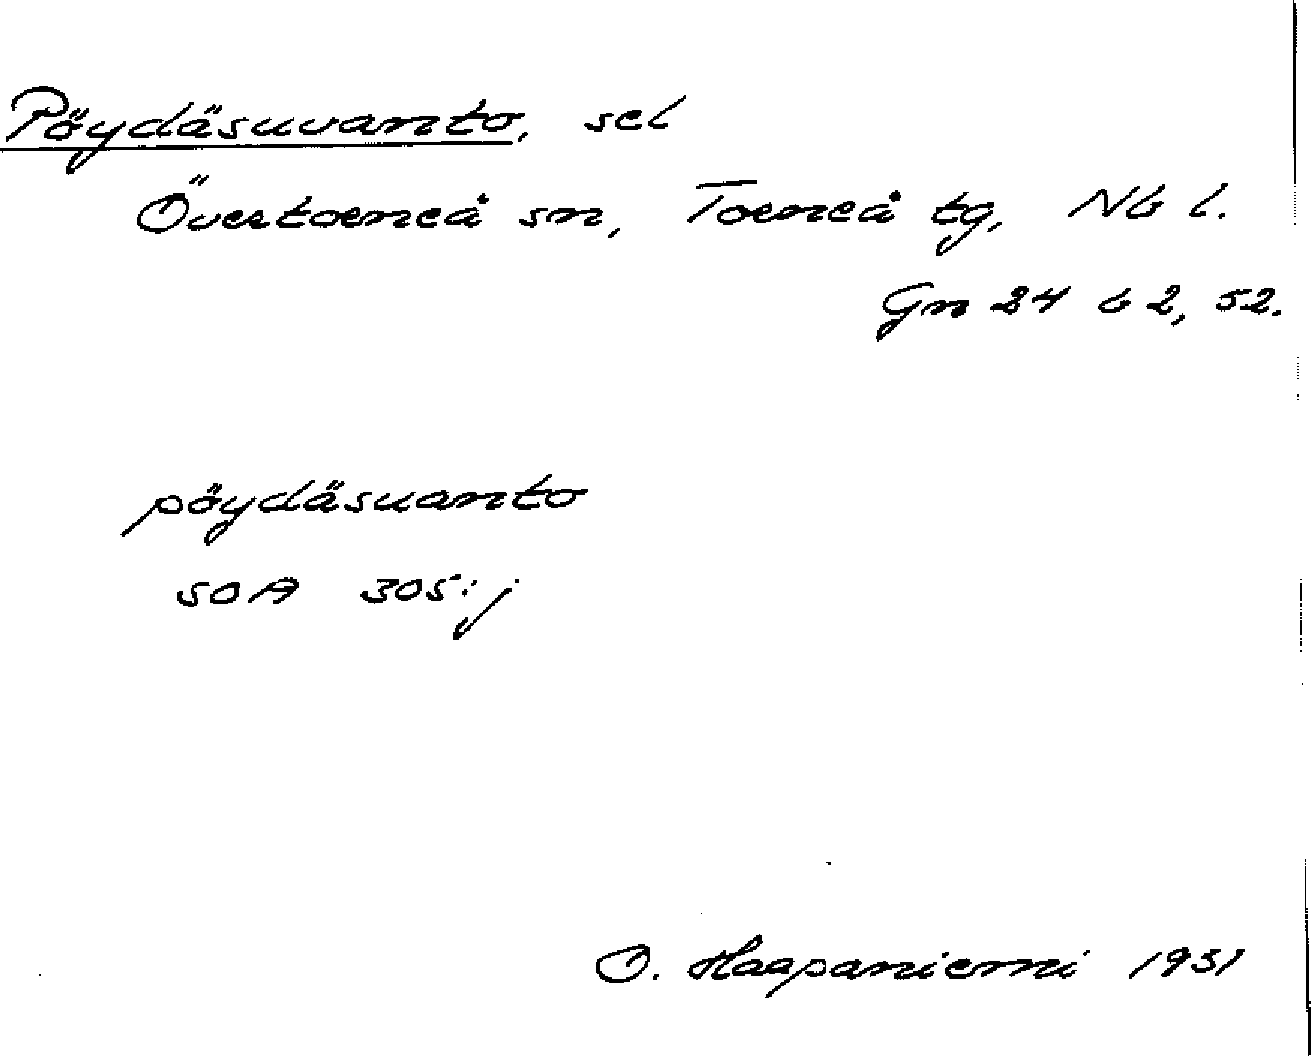 Pöydäsuvanto, sel
Övertorneå sn, Torneå tg, Nb l.
Gn 24 b 2, 52.
pöydäsuanto
SOA 305:j
O. Haapaniemi 1931